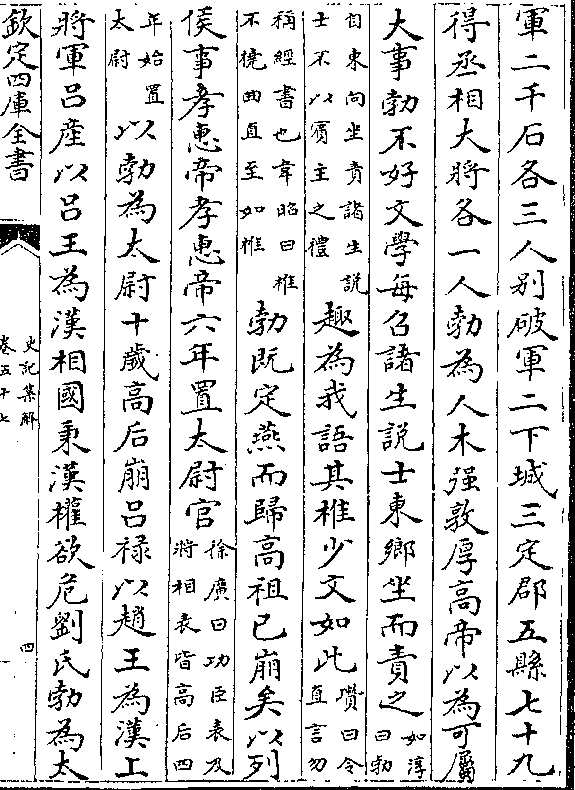 軍二千石各三人别破軍二下城三定郡五縣七十九
得丞相大將各一人勃為人木强敦厚高帝以為可屬
大事勃不好文學每召諸生説士東鄉坐而責之如淳曰勃
自東向坐責諸生説士不以賓主之禮趣為我語其椎少文如此瓚曰令直言勿
稱經書也韋昭曰椎不橈曲直至如椎勃既定燕而歸高祖已崩矣以列
侯事孝惠帝孝惠帝六年置太尉官徐廣曰功臣表及將相表皆高后四
年始置太尉以勃為太尉十歲高后崩吕禄以趙王為漢上
將軍吕産以吕王為漢相國秉漢權欲危劉氏勃為太
欽定四庫全書
史記集解
卷五十七
四